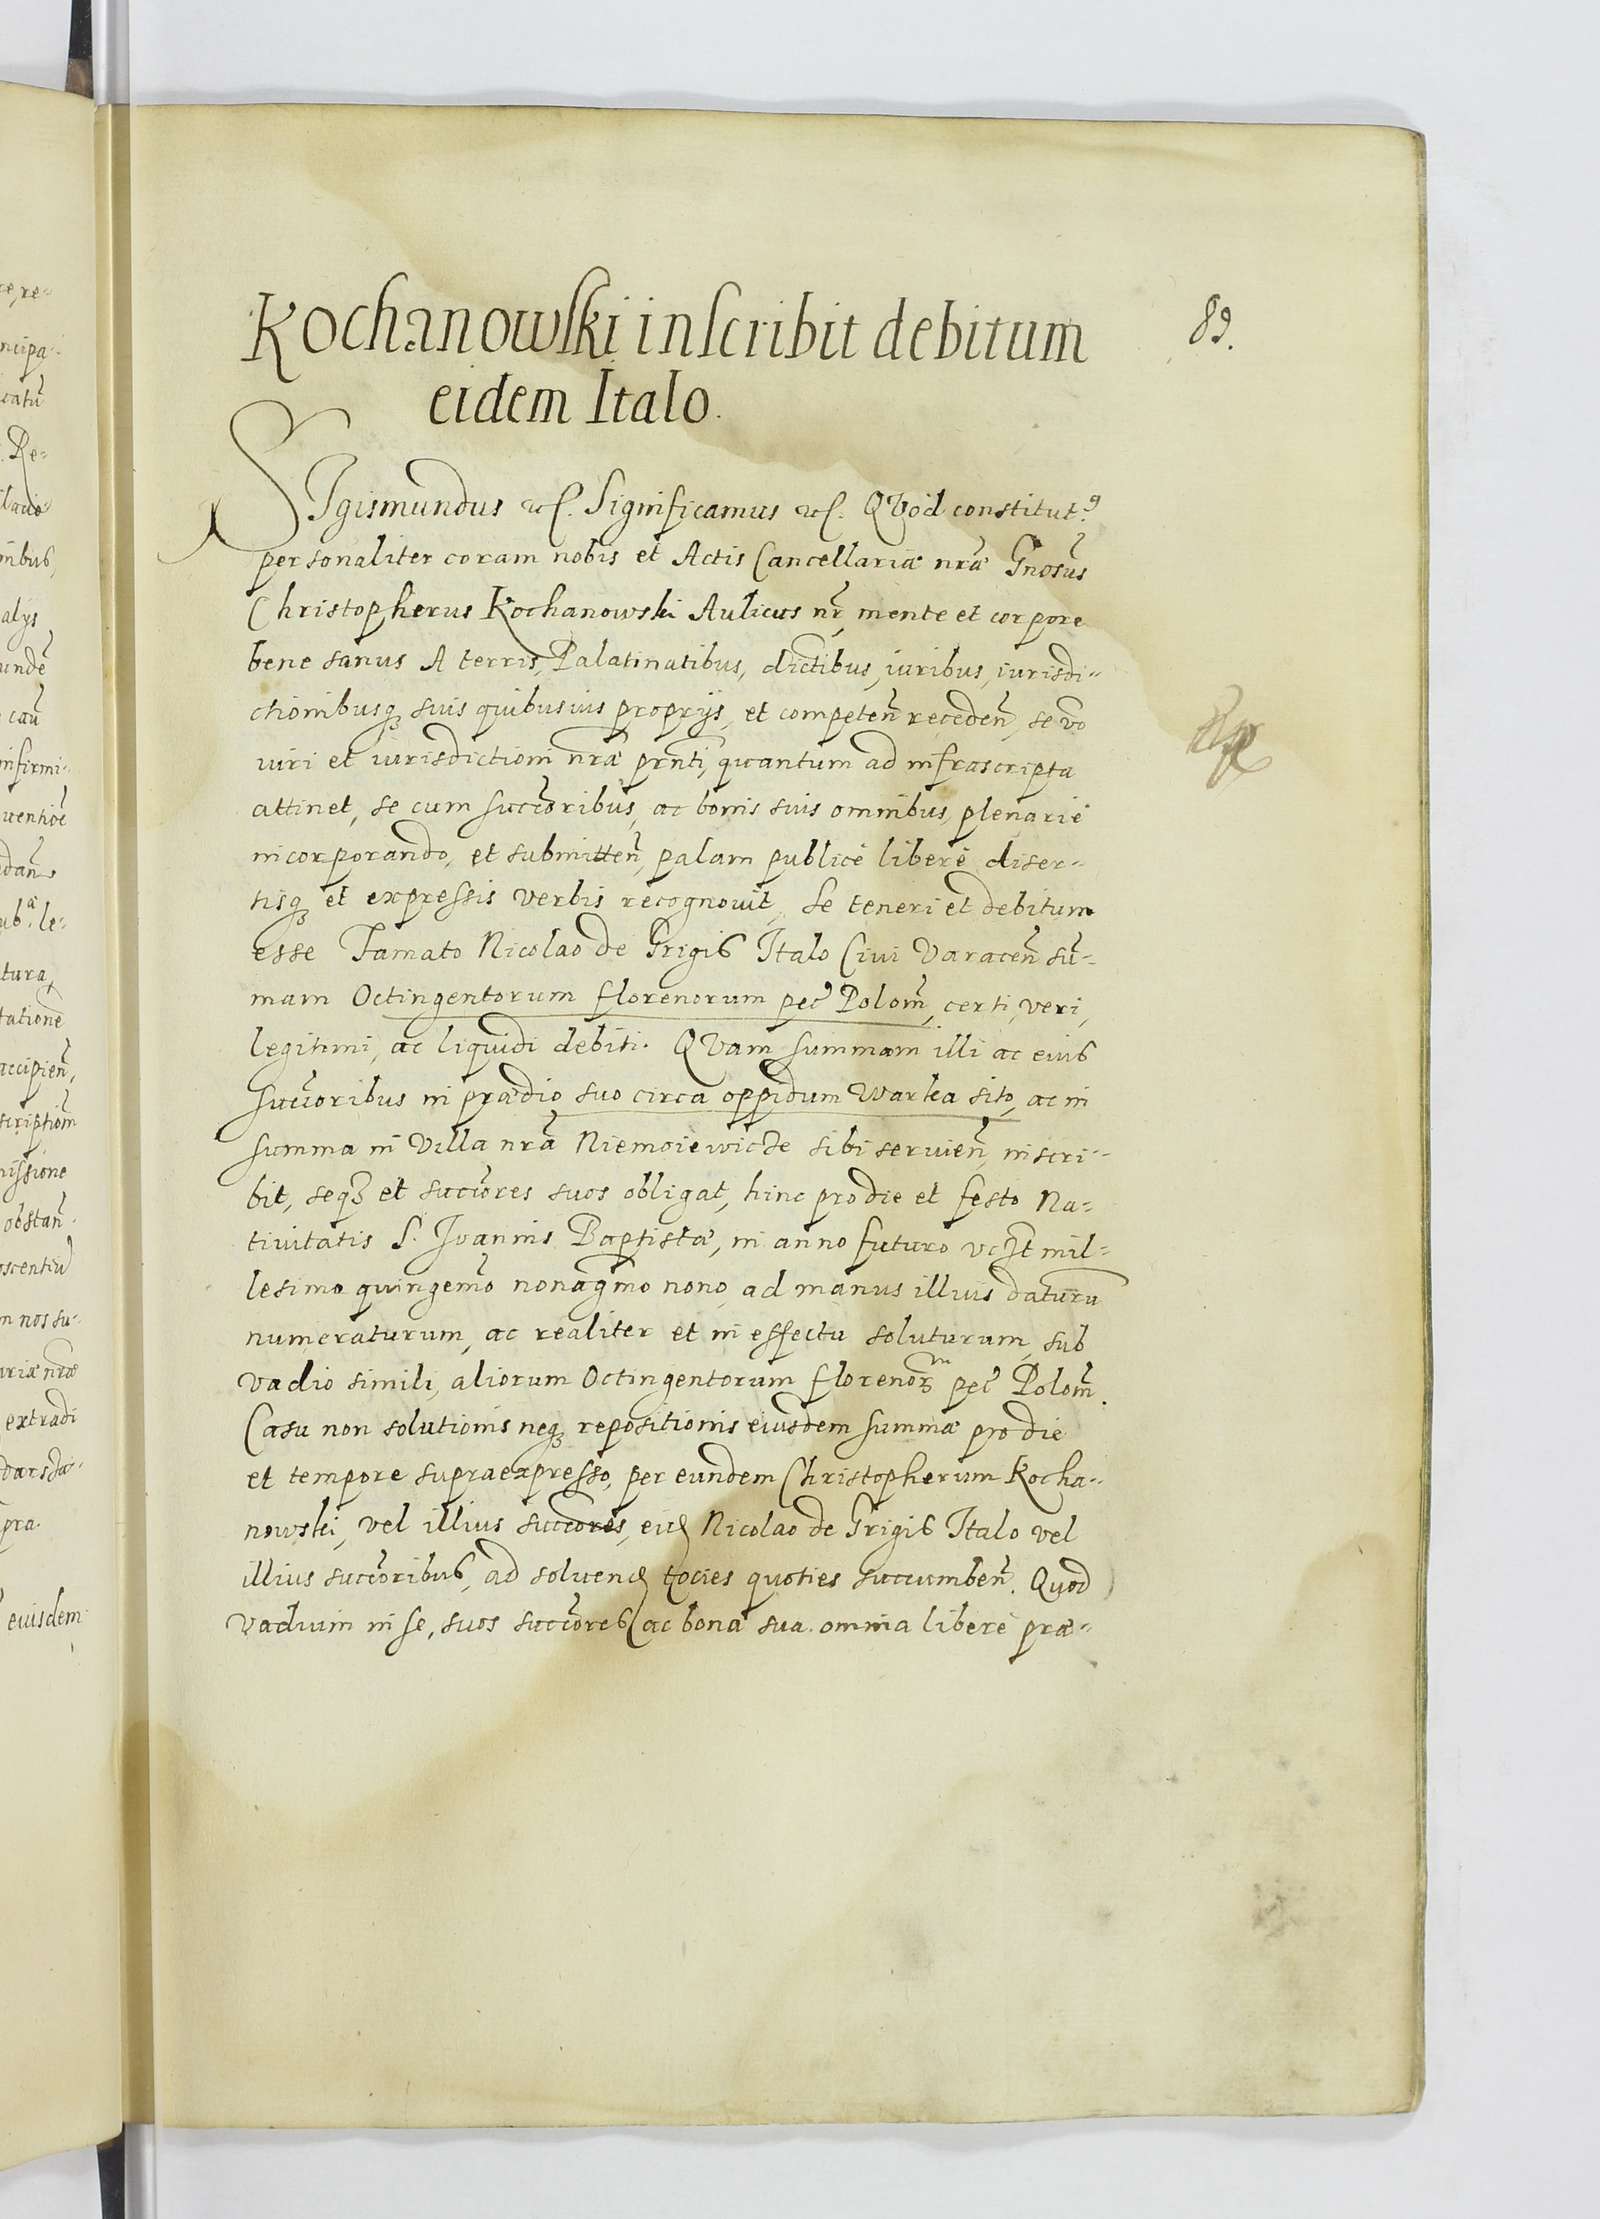 Kochanowski inscribit debitum
89.
eidem Italo.
SIgismundus etc. Significamus etc. QVod constitut9
personaliter coram nobis et Actis Cancellariæ nræ Gnosus
Christopherus Kochanowski Aulicus nr, mente et corpore
bene sanus A terris, Palatinatibus, dictibus, iuribus, iurisdi-
ctionibusq suis quibusuis proprijs, et competen receden, se vo
iuri et iurisdictioni nræ prnti, quantum ad infrascripta
attinet, se cum succoribus, ac bonis suis omnibus, plenarié
incorporando, et submitten, palam publicé liberé diser-
tisq et expressis verbis recognouit, Se teneri et debitum
esse Famato Nicolao de Grigis Italo Ciui Varacen su-
mam Octingentorum florenorum pec Polom, certi, veri,
legitimi, ac liquidi debiti. QVam summam illi ac eius
succoribus in prædio suo circa oppidum Warka sito, ac in
summa in Villa nra Niemoiewicze sibi seruien, inscri-
bit, seq et succores suos obligat, hinc pro die et festo Na-
tiuitatis S. Ioannis Baptistæ, in anno futuro vczt mil-
lesimo quingemo nonagmo nono, ad manus illius daturu
numeraturum, ac realiter et in effectu soluturum, sub
vadio simili, aliorum Octingentorum florenor pec Polom.
Casu non solutionis neq repositionis eiusdem summæ pro die
et tempore supraexpresso, per eundem Christopherum Kocha-
nowski, vel illius succores, eid Nicolao de Grigis Italo vel
illius succoribus, ad soluend tocies quoties succumben. Quod
vadium in se, suos succores ac bona sua omnia liberé præ-